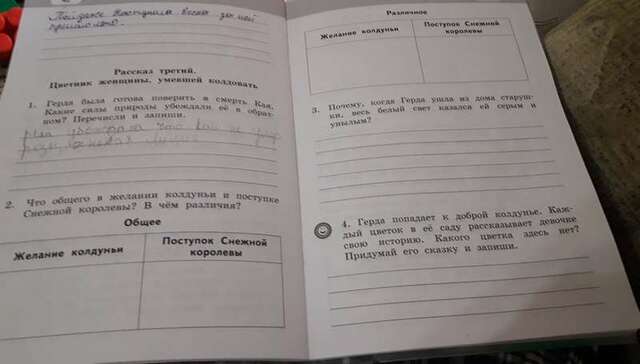 Рассказ третий.
Цветник женщины, умевшей колдовать
1. Герда была готова поверить в смерть Кая.
Какие силы природы убеждали её в обрат-
ном? Перечисли и запиши.
2. Что общего в желании колдуньи и поступке
Снежной королевы? В чём различия?
Общее
Желание колдуньи
Поступок Снежной
королевы
Различное
Желание колдуньи
Поступок Снежной
королевы
3. Почему, когда Герда ушла из дома старуш-
ки, весь белый свет казался ей серым и
унылым?
4. Герда попадает к доброй колдунье. Каж-
дый цветок в её саду рассказывает девочке
свою историю. Какого цветка здесь нет?
Придумай его сказку и запиши.